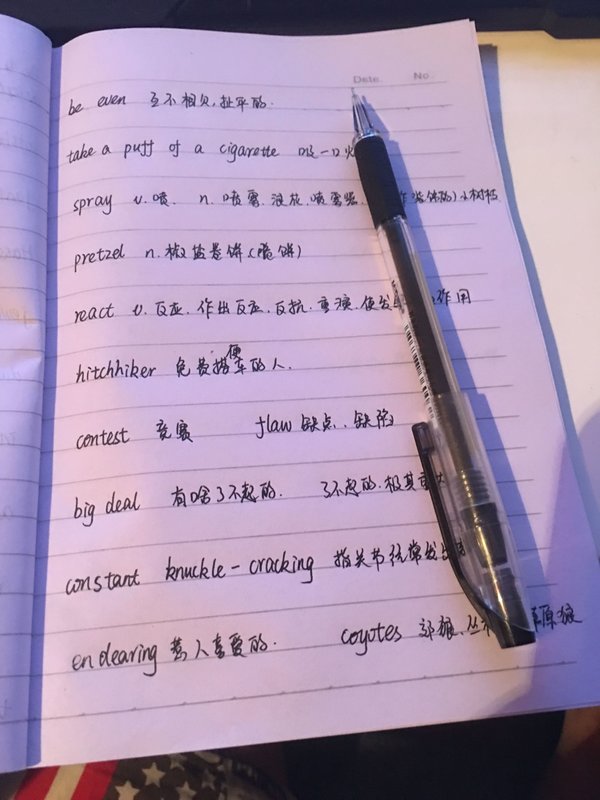 Date. No.
be even 互不相欠,扯平的.
take a puff of a cigarette 吸一口
spray v.喷. n.喷雾.浪花.喷雾器. 小树枝
pretzel n.椒盐卷饼(脆饼)
react v.反应.作出反应.反抗.重演.使发 作用
hitchhiker 免费搭便车的人.
contest 竞赛 flaw 缺点.缺陷
big deal 有啥了不起的. 了不起的.极其
constant knuckle-cracking 指关节经常发出
endearing 惹人喜爱的. coyotes 郊狼.丛 草原狼